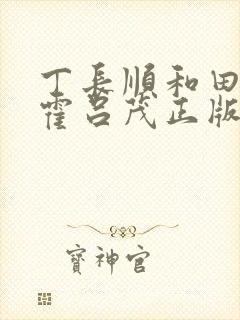 丁長順和田
霍呂茂正版
寶神官